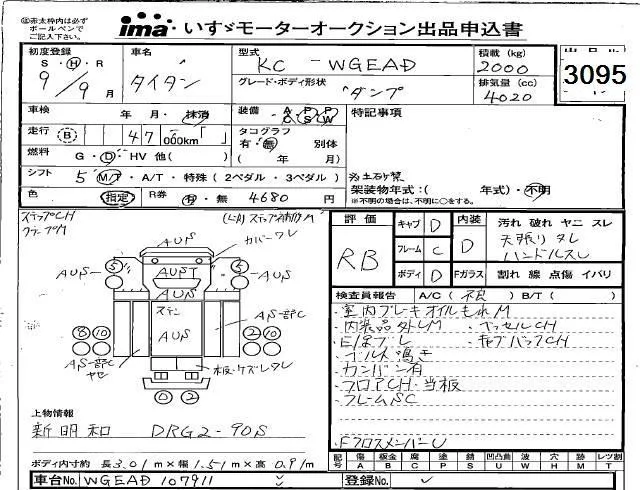 ㊟赤太枠内は必ず
ボールペンで
ご記入下さい。
ima いすゞモーターオークション出品申込書
初度登録
S・H・R
9/9月
車名
タイタン
型式
KC-WGEAD
グレード・ボディ形状
ダンプ
積載(kg)
2000
排気量(cc)
4020
3095
車検 年・月・抹消
走行 B 47 000km「 」
燃料 G・D・HV 他( )
シフト 5 M/T・A/T・特殊(2ペダル・3ペダル)
色 指定 R券 有・無 4680円
装備 A/C P/S P/W
タコグラフ
有・無 別体
( 年 月)
特記事項
※土石ケ禁
架装物年式:( 年式)・不明
※不明の場合は、不明に○をする。
ステップCH
クランプM
AUS
カバーワレ
AUS
5
AUST
5
AUS
AUS
ステン
AUS
8 10
2 10
AS・部C
ヤセ
板・ケズレワレ
0 2
上物情報
新明和 DRG2-90S
ボディ内寸約 長3.01m×幅1.51m×高0.91m
車台No. WGEAD 107911
登録No.
評価
RB
キャブ D
フレーム C
ボディ D
内装
D
Fガラス
汚れ 破れ ヤニ スレ
天張りタレ
ハンドルスレ
割れ 線 点傷 イバリ
検査員報告 A/C(不良)B/T( )
・室内ブレーキオイルもれM
・内装品外しM ・ベッセルCH
・E/Gブレ ・キャブバックCH
・ベルト鳴き
・カンバン有
・フロアCH・当板
・フレームSC
・FクロスメンバーU
記号 傷A 板金B 腐C 塗P 錆S 凹凸曲U 波W 穴H 跡M レツ割T